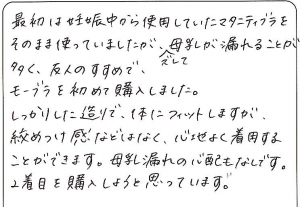 最初は妊娠中から使用していたマタニティブラを
そのまま使っていましたが、ズレて母乳が漏れることが
多く、友人のすすめで、
モーブラを初めて購入しました。
しっかりした造りで、体にフィットしますが、
絞めつけ感などはなく、心地よく着用する
ことができます。母乳漏れの心配もなしです。
2着目を購入しようと思っています。